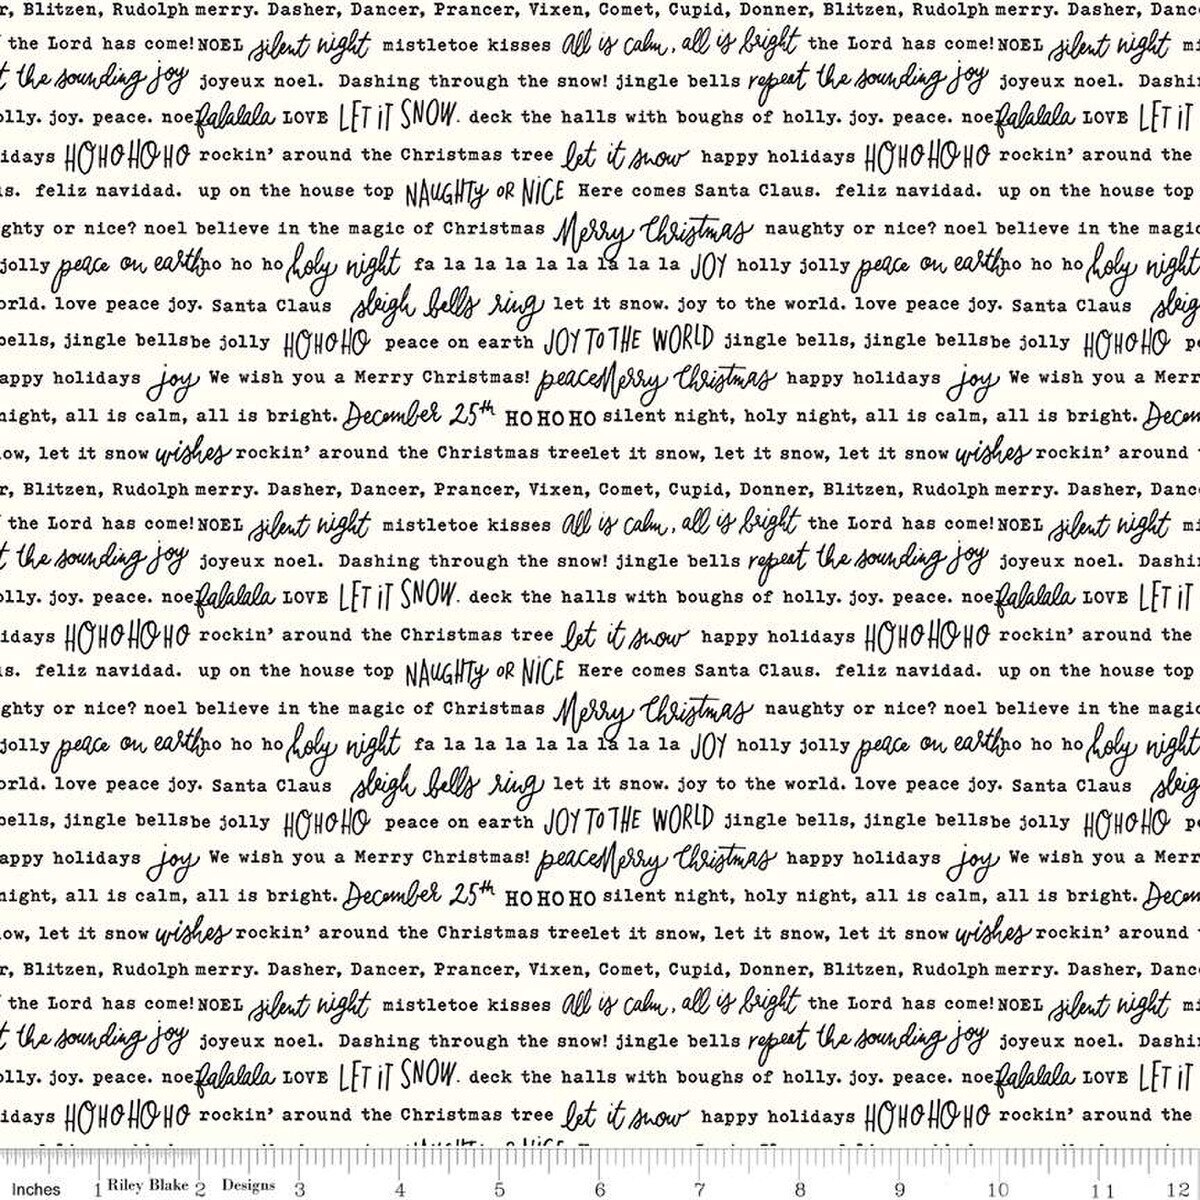 r, Blitzen, Rudolph merry. Dasher, Dancer, Prancer, Vixen, Comet, Cupid, Donner, Blitzen, Rudolph merry. Dasher, Danc
the Lord has come! NOEL silent night mistletoe kisses All is calm, all is bright the Lord has come! NOEL silent night mi
t the sounding joy joyeux noel. Dashing through the snow! jingle bells repeat the sounding joy joyeux noel. Dashi
olly. joy. peace. noe falalala LOVE LET iT SNOW. deck the halls with boughs of holly. joy. peace. noe falalala LOVE LET iT
idays HOHOHOHO rockin' around the Christmas tree let it snow happy holidays HOHOHOHO rockin' around the
s. feliz navidad. up on the house top NAUGHTY OR NiCE Here comes Santa Claus. feliz navidad. up on the house top
ghty or nice? noel believe in the magic of Christmas Merry Christmas naughty or nice? noel believe in the magic
jolly peace on earth ho ho ho holy night fa la la la la la la la la JOY holly jolly peace on earth ho ho ho holy night
orld. love peace joy. Santa Claus sleigh bells ring let it snow. joy to the world. love peace joy. Santa Claus sleig
bells, jingle bells be jolly HOHOHO peace on earth JOY TO THE WORLD jingle bells, jingle bells be jolly HOHOHO pe
appy holidays joy We wish you a Merry Christmas! peace Merry Christmas happy holidays joy We wish you a Merr
night, all is calm, all is bright. December 25th HO HO HO silent night, holy night, all is calm, all is bright. Decem
ow, let it snow wishes rockin' around the Christmas tree let it snow, let it snow, let it snow wishes rockin' around
r, Blitzen, Rudolph merry. Dasher, Dancer, Prancer, Vixen, Comet, Cupid, Donner, Blitzen, Rudolph merry. Dasher, Danc
the Lord has come! NOEL silent night mistletoe kisses All is calm, all is bright the Lord has come! NOEL silent night mi
t the sounding joy joyeux noel. Dashing through the snow! jingle bells repeat the sounding joy joyeux noel. Dashi
olly. joy. peace. noe falalala LOVE LET iT SNOW. deck the halls with boughs of holly. joy. peace. noe falalala LOVE LET iT
idays HOHOHOHO rockin' around the Christmas tree let it snow happy holidays HOHOHOHO rockin' around the
s. feliz navidad. up on the house top NAUGHTY OR NiCE Here comes Santa Claus. feliz navidad. up on the house top
ghty or nice? noel believe in the magic of Christmas Merry Christmas naughty or nice? noel believe in the magic
jolly peace on earth ho ho ho holy night fa la la la la la la la la JOY holly jolly peace on earth ho ho ho holy night
orld. love peace joy. Santa Claus sleigh bells ring let it snow. joy to the world. love peace joy. Santa Claus sleig
bells, jingle bells be jolly HOHOHO peace on earth JOY TO THE WORLD jingle bells, jingle bells be jolly HOHOHO pe
appy holidays joy We wish you a Merry Christmas! peace Merry Christmas happy holidays joy We wish you a Merr
night, all is calm, all is bright. December 25th HO HO HO silent night, holy night, all is calm, all is bright. Decem
ow, let it snow wishes rockin' around the Christmas tree let it snow, let it snow, let it snow wishes rockin' around
r, Blitzen, Rudolph merry. Dasher, Dancer, Prancer, Vixen, Comet, Cupid, Donner, Blitzen, Rudolph merry. Dasher, Danc
the Lord has come! NOEL silent night mistletoe kisses All is calm, all is bright the Lord has come! NOEL silent night mi
t the sounding joy joyeux noel. Dashing through the snow! jingle bells repeat the sounding joy joyeux noel. Dashi
olly. joy. peace. noe falalala LOVE LET iT SNOW. deck the halls with boughs of holly. joy. peace. noe falalala LOVE LET iT
idays HOHOHOHO rockin' around the Christmas tree let it snow happy holidays HOHOHOHO rockin' around the
Inches 1 Riley Blake 2 Designs 3 4 5 6 7 8 9 10 11 12